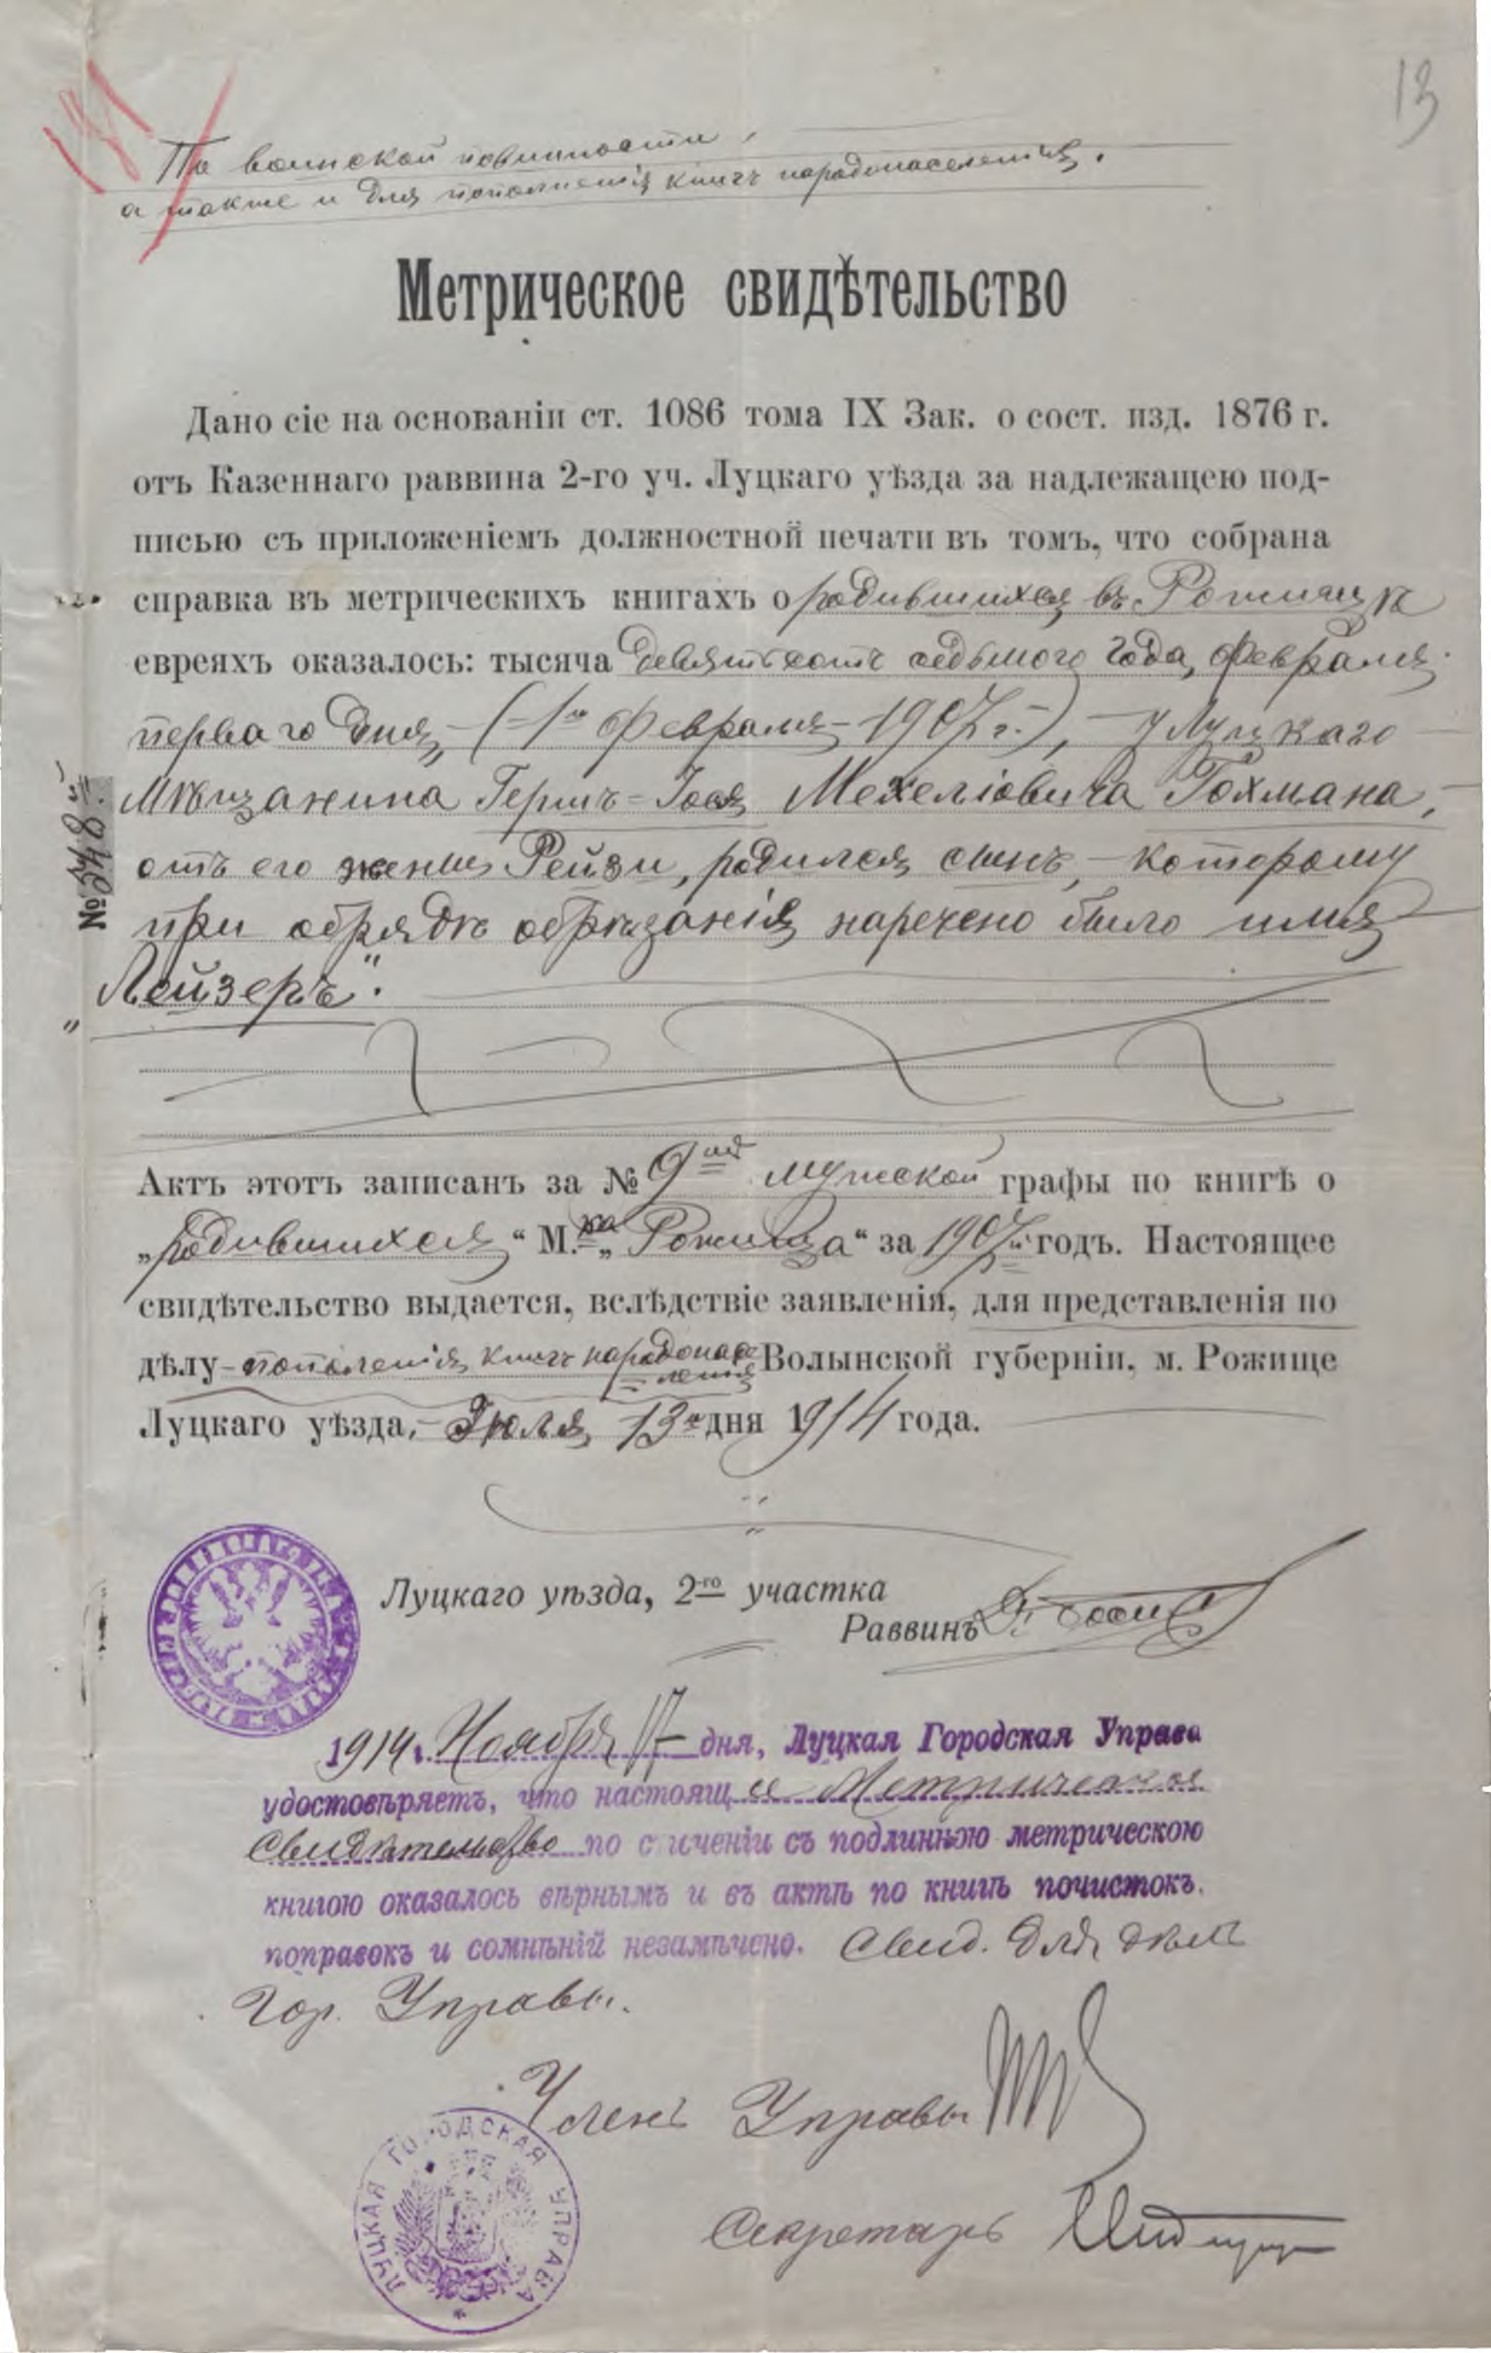 13
По воинской повинности,
а также и для пополненія книгъ народонаселенія.
Метрическое свидѣтельство
Дано сіе на основаніи ст. 1086 тома IX Зак. о сост. изд. 1876 г.
отъ Казеннаго раввина 2-го уч. Луцкаго уѣзда за надлежащею под-
писью съ приложеніемъ должностной печати въ томъ, что собрана
справка въ метрическихъ книгахъ о родившихся въ Рожищѣ
евреяхъ оказалось: тысяча девятьсотъ седьмого года, февраля
перваго дня, – (– 1го Февраля – 1907 г. –), – у Луцкаго
мѣщанина Гершъ=Іося Мехеліовича Гохмана, –
отъ его жены Рейзи, родился сынъ, – которому
при обрядѣ обрѣзанія наречено было имя
„Лейзеръ".
№ 348й
Актъ этотъ записанъ за № 9мъ мужской графы по книгѣ о
„родившихся" М.ка „Рожища" за 1907й годъ. Настоящее
свидѣтельство выдается, вслѣдствіе заявленія, для представленія по
дѣлу – пополненія книгъ народонасе Волынской губерніи, м. Рожище
= ленія
Луцкаго уѣзда, – Іюля 13го дня 1914 года.
Луцкаго уѣзда, 2-го участка
Раввинъ
1914 г. Ноября 17 дня, Луцкая Городская Управа
удостовѣряетъ, что настоящ ее Метрическое
Свидѣтельство по сличеніи съ подлинною метрическою
книгою оказалось вѣрнымъ и въ актѣ по книгѣ почистокъ,
поправокъ и сомнѣній незамѣчено. Свид. для дѣлъ
Гор. Управы.
Членъ Управы
ЛУЦКАЯ ГОРОДСКАЯ УПРАВА
Секретарь